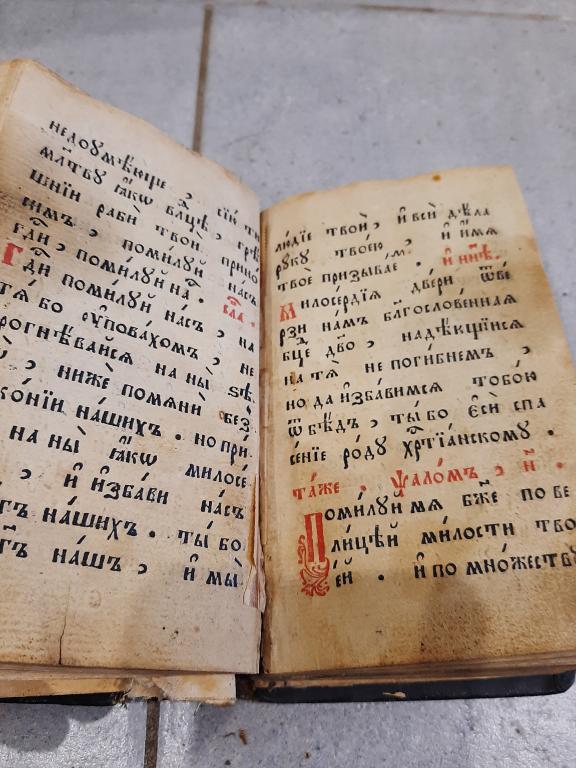 недоумѣюще , сїю ти
мл҃тву ꙗ҆кѡ влⷣцѣ , грѣ
шнїи раби твои прино
симъ , помилуй насъ .
гдⷭ҇и , помилуй наⷭ҇ . сла .
Гдⷭ҇и помилуй насъ , на
тѧ бо ᲂуповахомъ , не
рогнѣвайсѧ на ны ѕѣ
, ниже помѧни без
коній нашихъ . но при
на ны ꙗ҆кѡ милосе
, и҆ и҆збави насъ
нашихъ . ты бо
нашъ , и҆ мы
людїе твои , и҆ вси дѣла
руку твоею , и҆ имѧ
твое призываеⷨ . и҆ нн҃ѣ .
Милосердїѧ двери ѿве
рзи намъ благословеннаѧ
бцⷣе дв҃о , надѣющїисѧ
на тѧ не погибнемъ ,
но да и҆збавимсѧ тобою
ѿ бѣдъ , ты бо є҆си спа
сенїе роду хрⷭ҇тїанскому .
таже . ѱаломъ , н҃ .
Помилуй мѧ бж҃е по ве
лицей милости тво
ей . и҆ по множеству